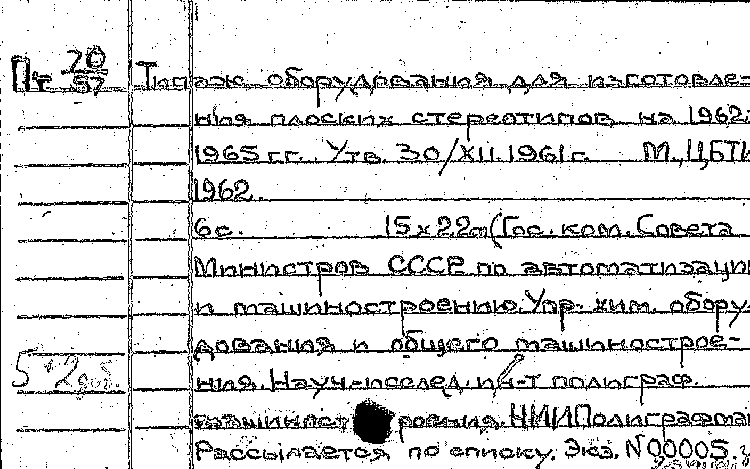 Пт 20/57 Типаж оборудования для изготовле-
ния плоских стереотипов на 1962-
1965 гг. Утв. 30/XII.1961г. М., ЦБТИ
1962.
6с. 15х22см (Гос. ком. Совета
Министров СССР по автоматизации
и машиностроению. Упр. хим. обору-
дования и общего машинострое-
5+2доб. ния. Науч.-исслед. ин-т полиграф.
машиност роения. НИИПолиграфмаш
Рассылается по списку. Экз. N00005.